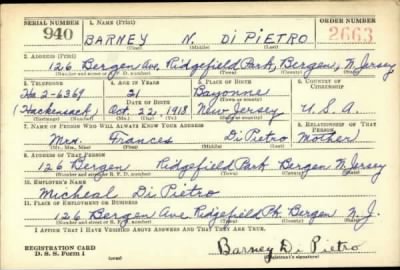 SERIAL NUMBER 1. NAME (Print) ORDER NUMBER
940 BARNEY N. DI PIETRO 2663
(First) (Middle) (Last)
2. ADDRESS (Print)
126 Bergen Ave. Ridgefield Park, Bergen, N. Jersey
(Number and street or R. F. D. number) (Town) (County) (State)
3. TELEPHONE 4. AGE IN YEARS 5. PLACE OF BIRTH 6. COUNTRY OF CITIZENSHIP
Ha. 2-6369 21 Bayonne
DATE OF BIRTH (Town or county)
Hackensack Oct. 22, 1918 New Jersey U.S.A.
(Exchange) (Number) (Mo.) (Day) (Yr.) (State or country)
7. NAME OF PERSON WHO WILL ALWAYS KNOW YOUR ADDRESS 8. RELATIONSHIP OF THAT PERSON
Mrs. Frances Di Pietro Mother
(Mr., Mrs., Miss) (First) (Middle) (Last)
9. ADDRESS OF THAT PERSON
126 Bergen Ridgefield Park Bergen N. Jersey
(Number and street or R. F. D. number) (Town) (County) (State)
10. EMPLOYER'S NAME
Micheal Di Pietro
11. PLACE OF EMPLOYMENT OR BUSINESS
126 Bergen Ave. Ridgefield Pk. Bergen N. J.
(Number and street or R. F. D. number) (Town) (County) (State)
I AFFIRM THAT I HAVE VERIFIED ABOVE ANSWERS AND THAT THEY ARE TRUE.
REGISTRATION CARD
D. S. S. Form 1 (over) Barney Di Pietro
(Registrant's signature)